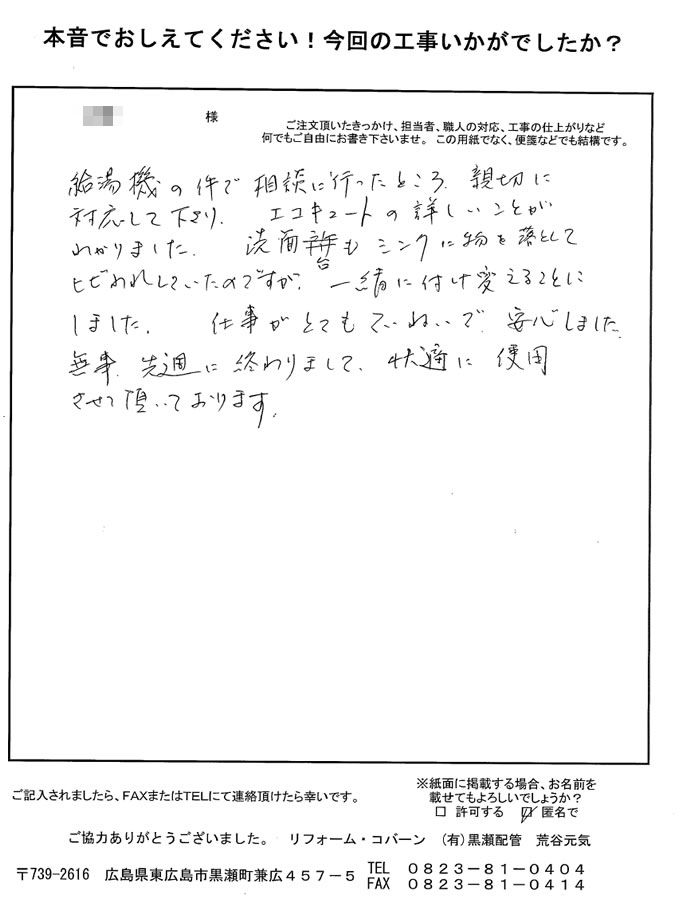 本音でおしえてください！今回の工事いかがでしたか？
様
ご注文頂いたきっかけ、担当者、職人の対応、工事の仕上がりなど
何でもご自由にお書き下さいませ。この用紙でなく、便箋などでも結構です。
給湯機の件で相談に行ったところ、親切に
対応して下さり、エコキュートの詳しいことが
わかりました。洗面台もシンクに物を落として
ヒビわれしていたのですが、一緒に付け変えることに
しました。仕事がとてもていねいで、安心しました
無事、先週に終わりまして、快適に使用
させて頂いております。
ご記入されましたら、FAXまたはTELにて連絡頂けたら幸いです。
※紙面に掲載する場合、お名前を
載せてもよろしいでしょうか？
□ 許可する ☑ 匿名で
ご協力ありがとうございました。 リフォーム・コバーン （有）黒瀬配管 荒谷元気
〒739-2616 広島県東広島市黒瀬町兼広４５７－５
TEL ０８２３－８１－０４０４
FAX ０８２３－８１－０４１４